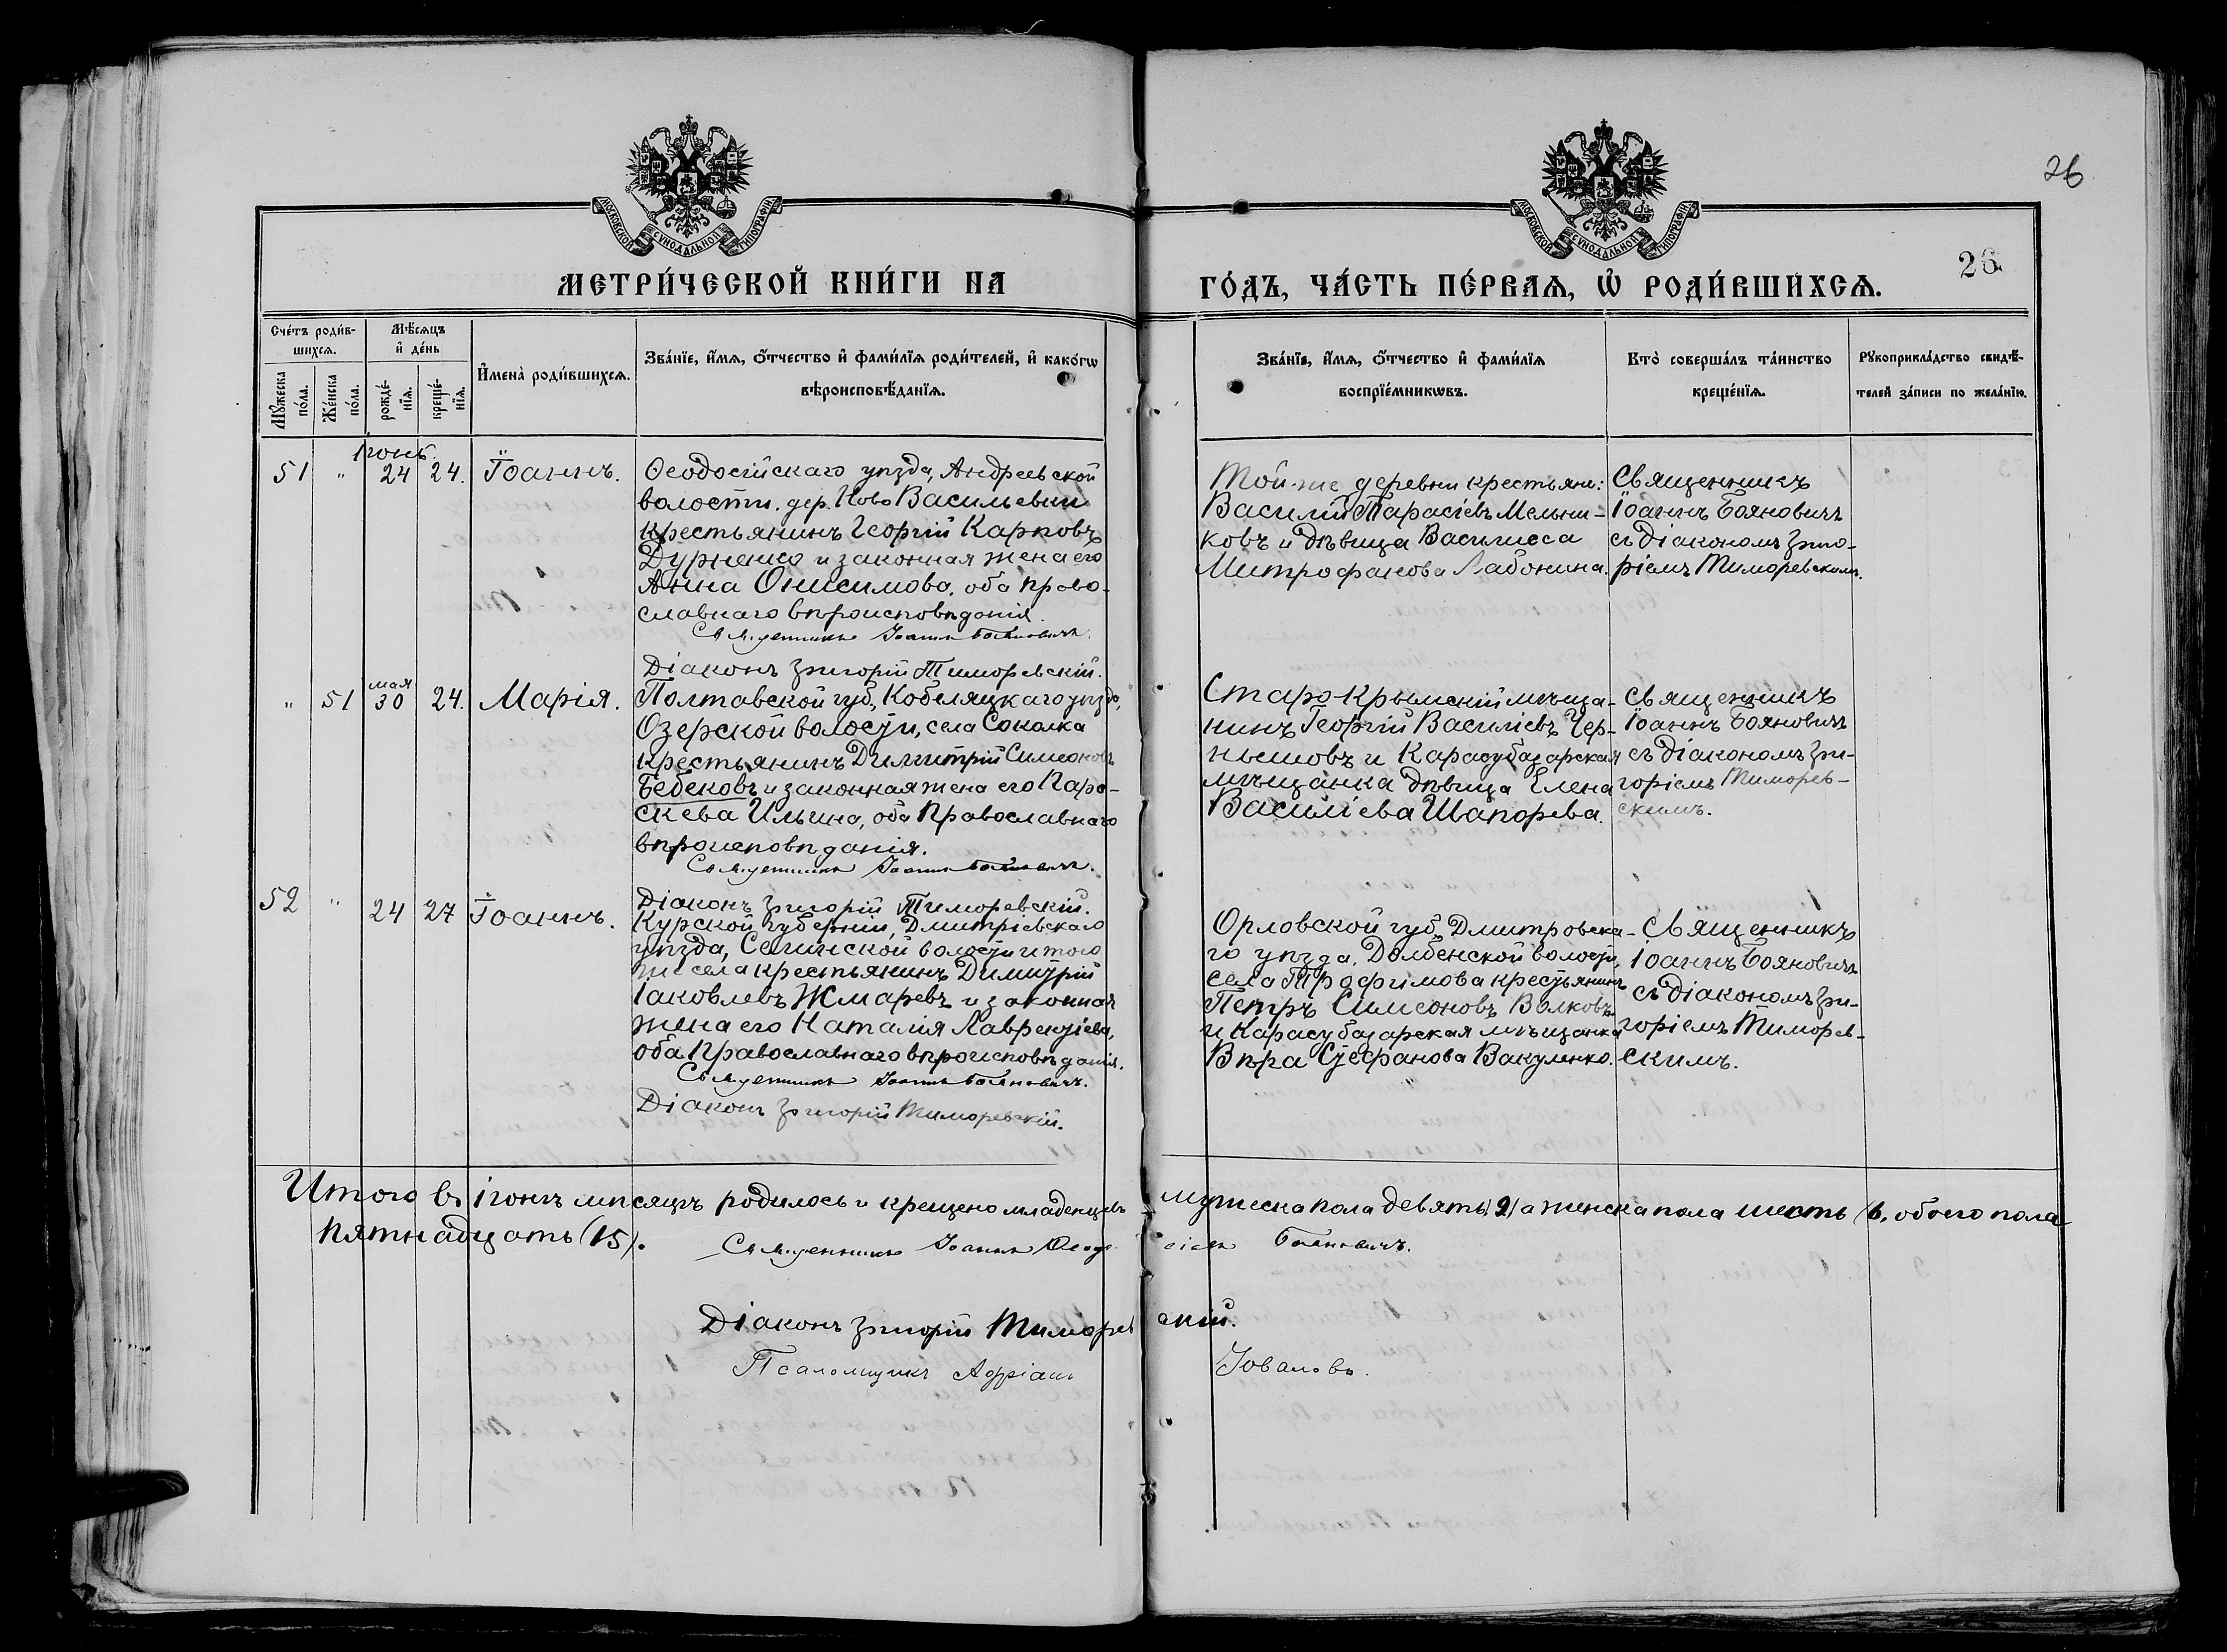 26
МОСКОВСКОЙ СѴНОДАЛЬНОЙ ТИПОГРАФІИ
МОСКОВСКОЙ СѴНОДАЛЬНОЙ ТИПОГРАФІИ
МЕТРИ́ЧЕСКОЙ КНИ́ГИ НА
ГО́ДЪ, ЧА́СТЬ ПЕ́РВАѦ, Ѡ҆ РОДИ́ВШИХСѦ.
26
Сче́тъ роди́в-
шихсѧ.
Мꙋ́жеска
по́ла.
Же́нска
по́ла.
Мѣ́сѧцъ
и҆ де́нь
рожде́-
нїѧ.
креще́-
нїѧ.
И҆мена̀ роди́вшихсѧ.
Зва́нїе, и҆́мѧ, ѻ҆́тчество и҆ фами́лїѧ роди́телей, и҆ како́гѡ
вѣроисповѣ́данїѧ.
Зва́нїе, и҆́мѧ, ѻ҆́тчество и҆ фами́лїѧ
воспрїе́мникѡвъ.
Кто̀ соверша́лъ та́инство
креще́нїѧ.
Рꙋкоприкла́дство свидѣ́-
телей за́писи по жела́нїю.
Іюнь.
51 " 24 24. Іоаннъ.
Ѳеодосійскаго уѣзда, Андреевской
волости. дер. Ново Васильевки
крестьянинъ Георгій Карповъ
Дурненко и законная жена его
Анна Онисимова, оба право-
славнаго вѣроисповѣданія.
Священникъ Іоаннъ Бояновичъ.
Діаконъ Григорій Тиморевскій.
Той-же деревни крестьян:
Василій Тарасіевъ Мельни-
ковъ и дѣвица Василиса
Митрофанова Лабонина.
Священникъ
Іоаннъ Бояновичъ
съ діакономъ Григо-
ріемъ Тиморевскимъ.
мая
" 51 30 24. Марія.
Полтавской губ., Кобеляцкаго уѣзда,
Озерской волости, села Соколка
крестьянинъ Димитрій Симеоновъ
Бебековъ и законная жена его Пара-
скева Ильина, оба Православнаго
вѣроисповѣданія.
Священникъ Іоаннъ Бояновичъ.
Діаконъ Григорій Тиморевскій.
Старо-Крымскій мѣща-
нинъ Георгій Василіевъ Чер-
нышовъ и Карасубазарская
мѣщанка дѣвица Елена
Василіева Шапорева.
Священникъ
Іоаннъ Бояновичъ
съ діакономъ Гри-
горіемъ Тиморев-
скимъ.
52 " 24 27 Іоаннъ.
Курской губерніи, Дмитріевскаго
уѣзда, Селинской волости и того
же села крестьянинъ Димитрій
Іаковлевъ Жмаревъ и законная
жена его Наталія Лаврентіева,
оба Православнаго вѣроисповѣданія.
Священникъ Іоаннъ Бояновичъ.
Діаконъ Григорій Тиморевскій.
Орловской губ., Дмитровска-
го уѣзда, Долбенской волости,
села Трофимова крестьянинъ
Петръ Симеоновъ Волковъ
и Карасубазарская мѣщанка
Вѣра Стефанова Вакуленко.
Священникъ
Іоаннъ Бояновичъ
съ діакономъ Гри-
горіемъ Тиморев-
скимъ.
Итого въ іюнѣ мѣсяцѣ родилось и крещено младенцевъ мужеска пола девять (9) а женска пола шесть (6, обоего пола
пятнадцать (15).
Священникъ Іоаннъ Ѳеодосіевъ Бояновичъ.
Діаконъ Григорій Тиморевскій.
Псаломщикъ